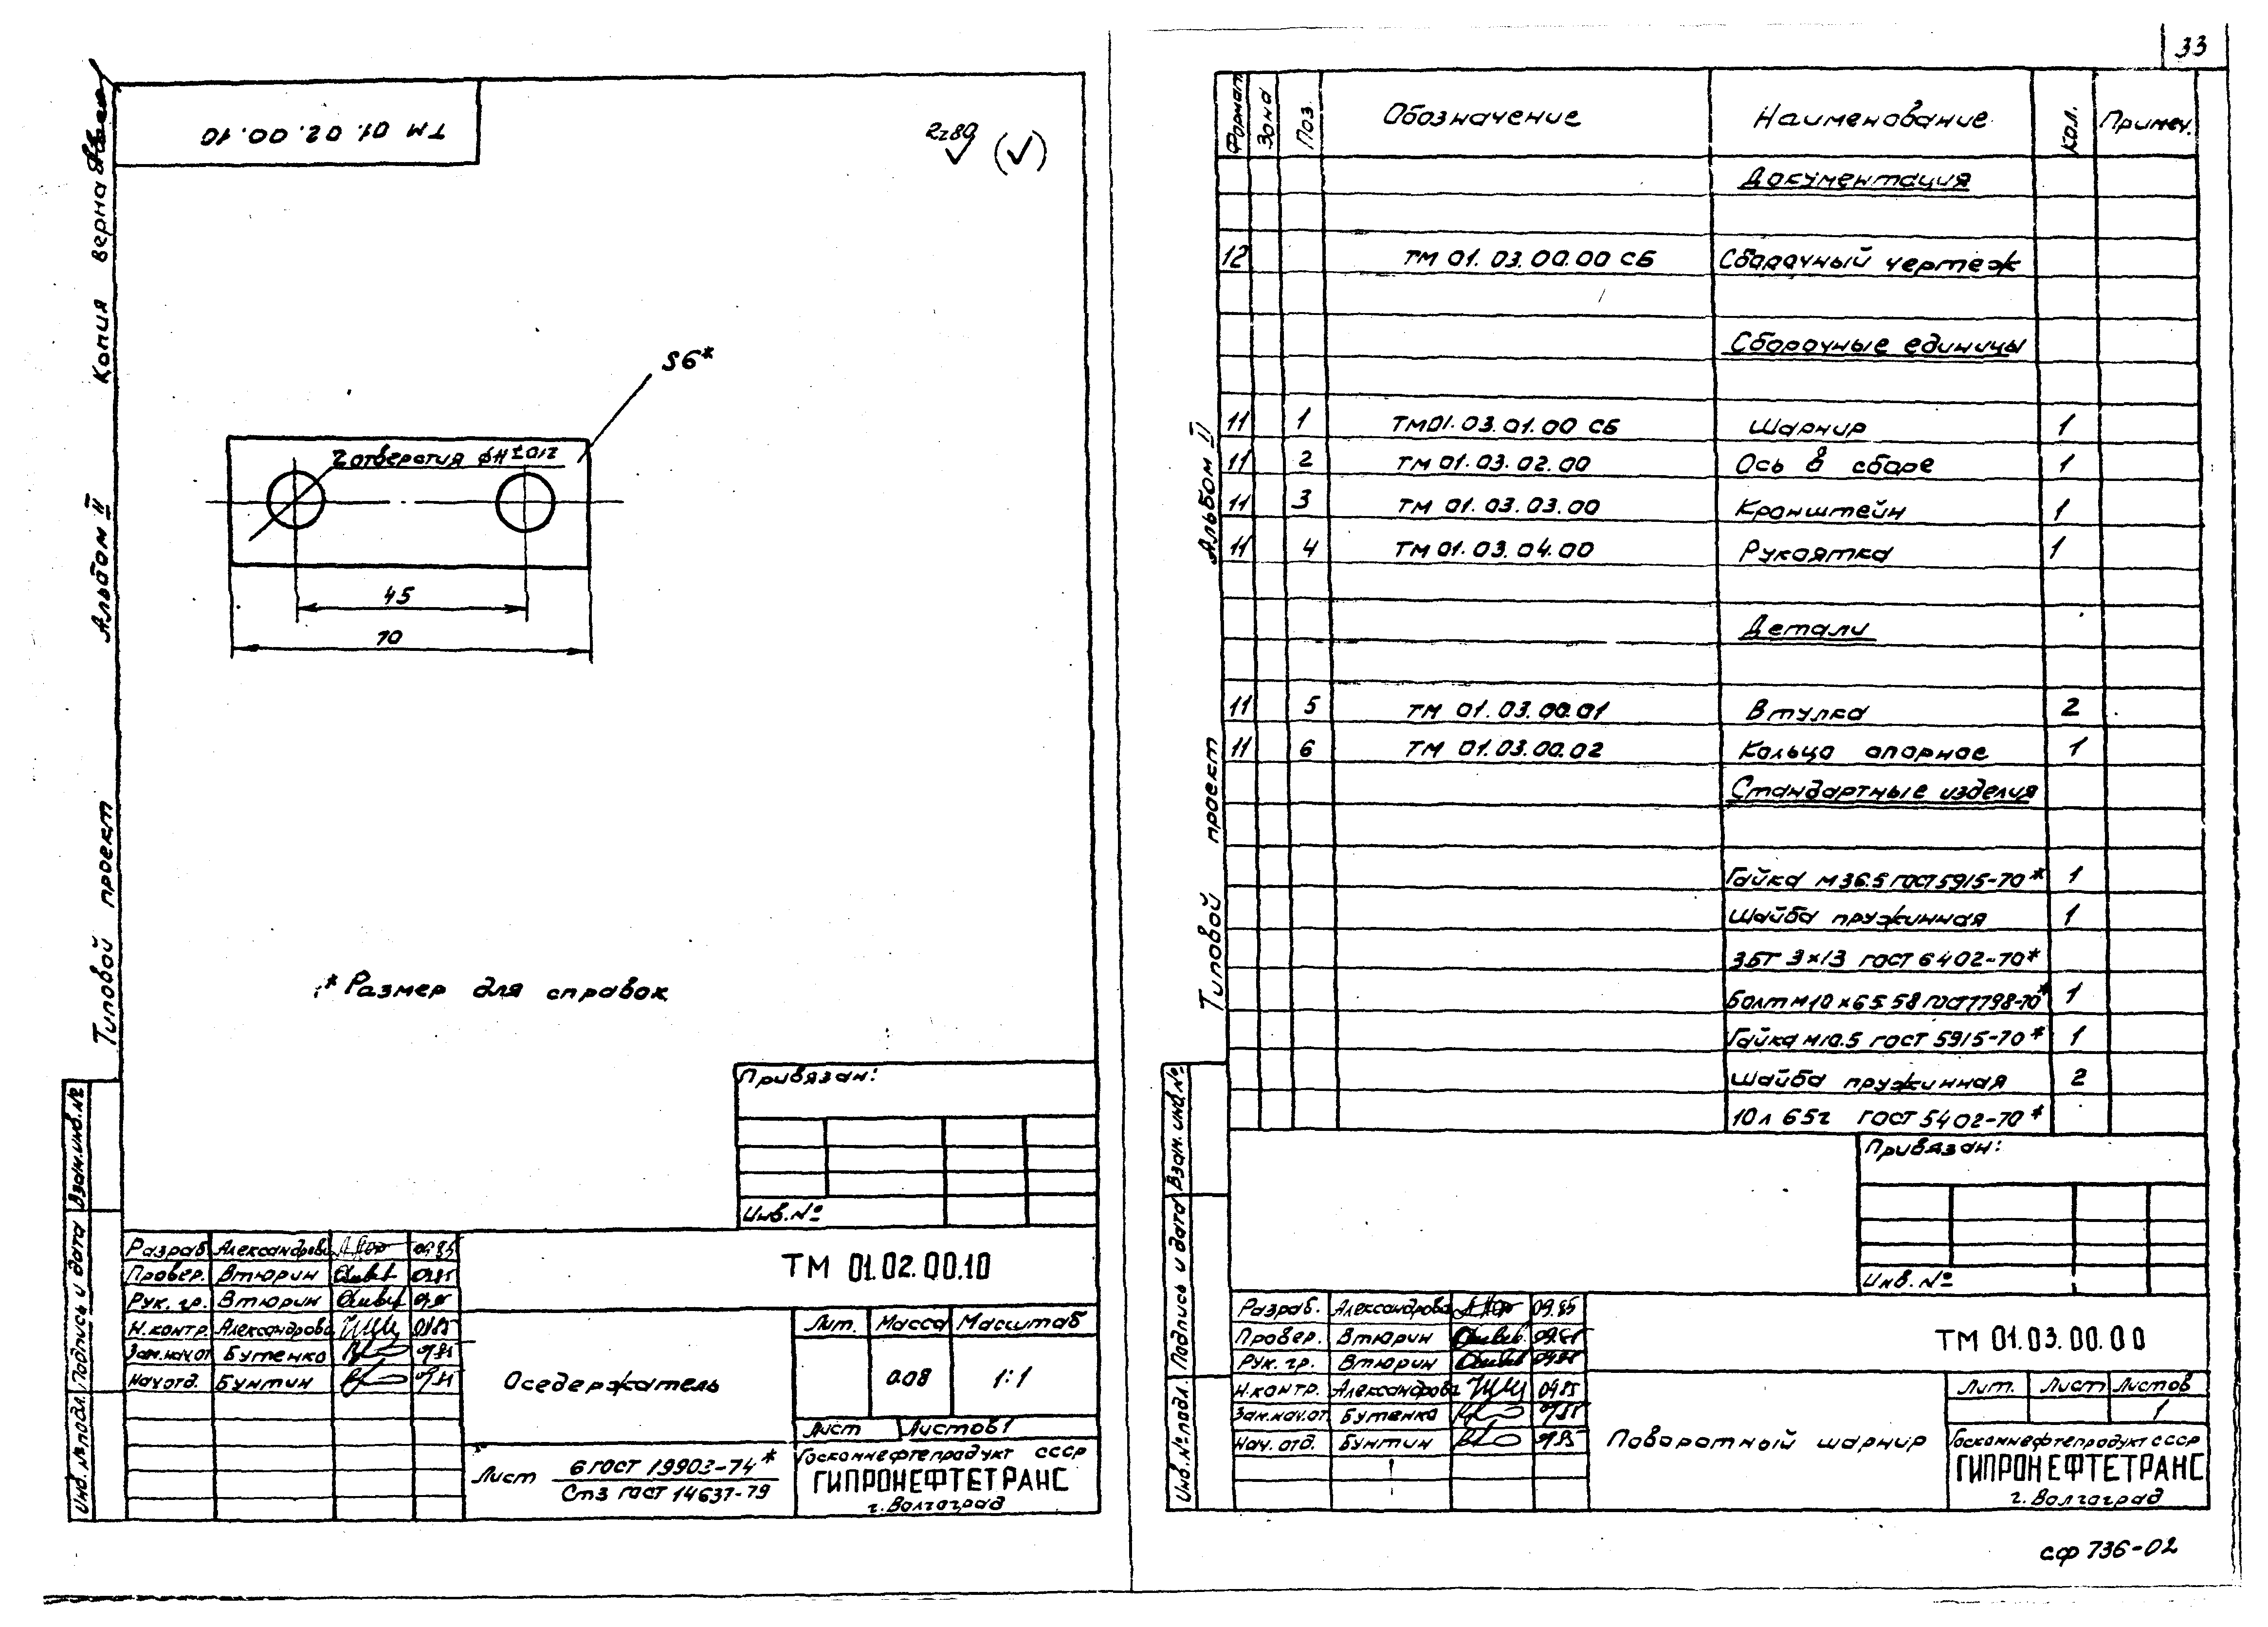 Копия верна
Альбом II
Типовой проект
ТМ 01.02.00.10
Rz80
(√)
S6*
2 отверстия
45
70
* Размер для справок
Привязан:
Инв. №
Взам. инв. №
Подпись и дата
Инв. № подл.
Разраб. Александрова 09.85
Провер. Втюрин 09.85
Рук. гр. Втюрин
Н. контр. Александрова 09.85
Зам. нач. от Бутенко
Нач. отд. Бунтин
ТМ 01.02.00.10
Оседержатель
Лит. Масса Масштаб
0.08 1:1
Лист Листов 1
Лист 6 ГОСТ 19903-74*
Ст3 ГОСТ 14637-79
Госкомнефтепродукт СССР
ГИПРОНЕФТЕТРАНС
г. Волгоград
33
Альбом II
Типовой проект
Формат Зона Поз. Обозначение Наименование Кол. Примеч.
Документация
12 ТМ 01.03.00.00 СБ Сборочный чертеж
Сборочные единицы
11 1 ТМ 01.03.01.00 СБ Шарнир 1
11 2 ТМ 01.03.02.00 Ось в сборе 1
11 3 ТМ 01.03.03.00 Кронштейн 1
11 4 ТМ 01.03.04.00 Рукоятка 1
Детали
11 5 ТМ 01.03.00.01 Втулка 2
11 6 ТМ 01.03.00.02 Кольцо опорное 1
Стандартные изделия
Гайка М36.5 ГОСТ 5915-70* 1
Шайба пружинная 1
3БТ 3×13 ГОСТ 6402-70*
Болт М10×65.58 ГОСТ 7798-70* 1
Гайка М10.5 ГОСТ 5915-70* 1
Шайба пружинная 2
10Л 65г ГОСТ 5402-70*
Привязан:
Инв. №
Взам. инв. №
Подпись и дата
Инв. № подл.
Разраб. Александрова 09.85
Провер. Втюрин 09.85
Рук. гр. Втюрин 09.85
Н. контр. Александрова 09.85
Зам. нач. от Бутенко
Нач. отд. Бунтин
ТМ 01.03.00.00
Поворотный шарнир
Лит. Лист Листов
1
Госкомнефтепродукт СССР
ГИПРОНЕФТЕТРАНС
г. Волгоград
сф 736-02